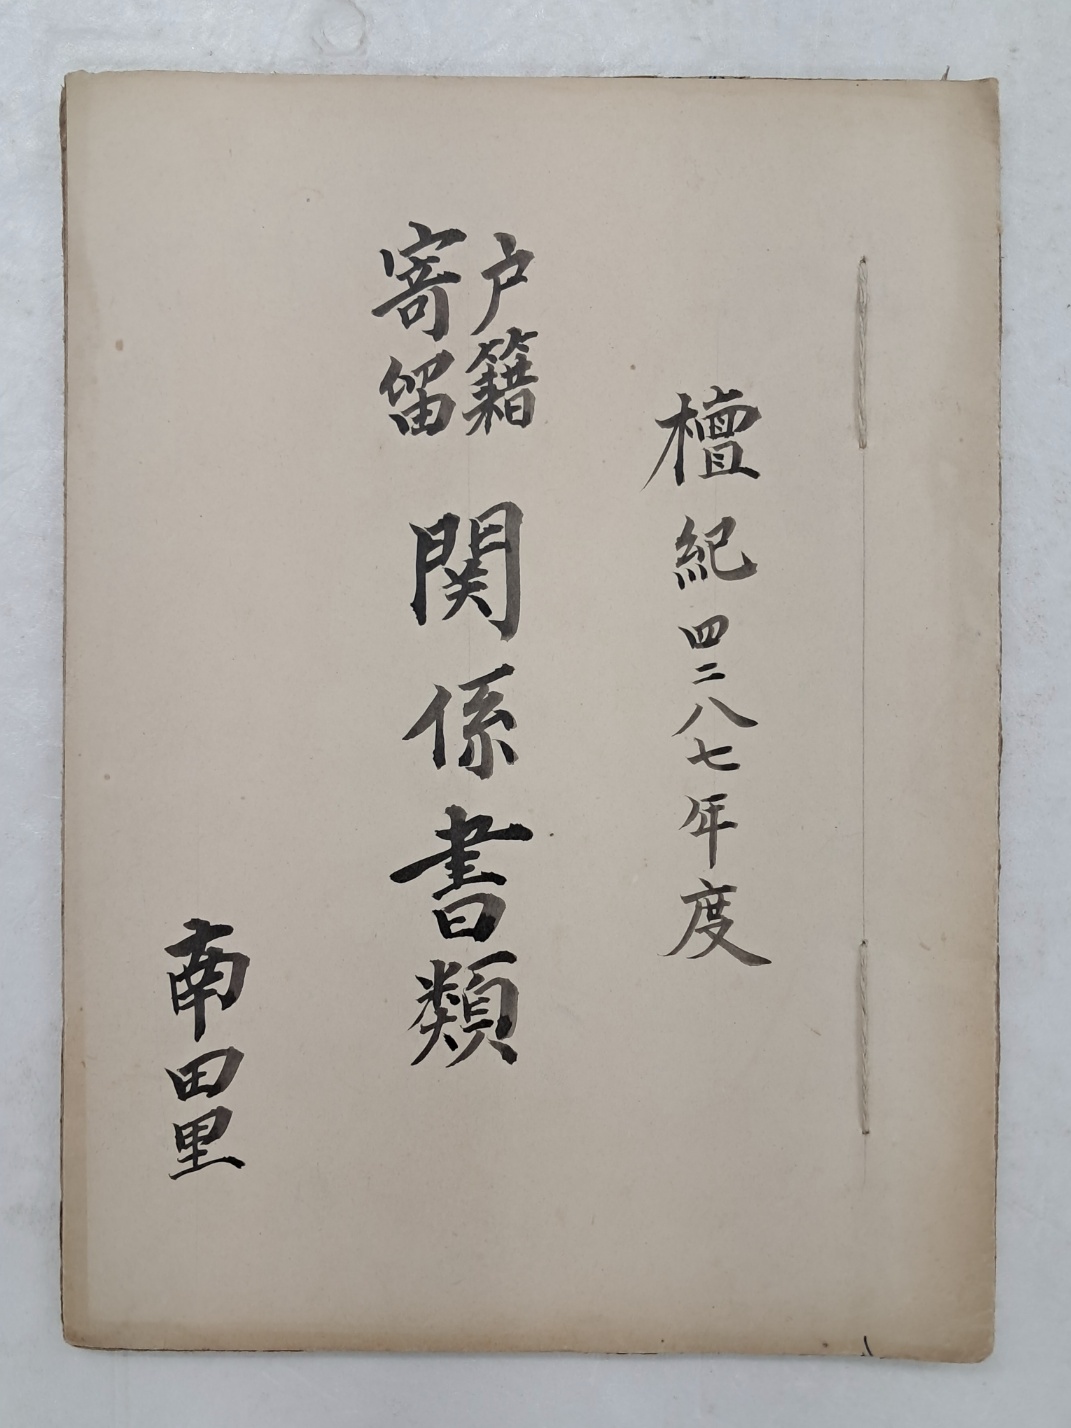 檀紀四二八七年度
戸籍
寄留
関係書類
南田里